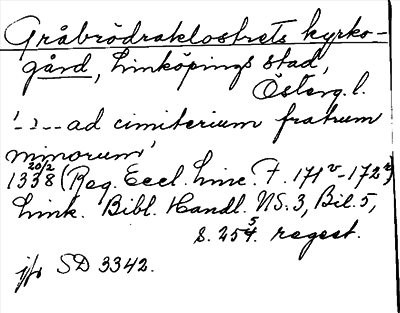 Gråbrödraklostrets kyrko-
gård, Linköpings stad,
Österg. l.
'- - - ad cimiterium fratrum
minorum'
20/2
1338 (Reg. Eccl. Linc. F. 171v-172r)
Link. Bibl. Handl. NS. 3, Bil. 5,
S. 255. regest.
jfr SD 3342.